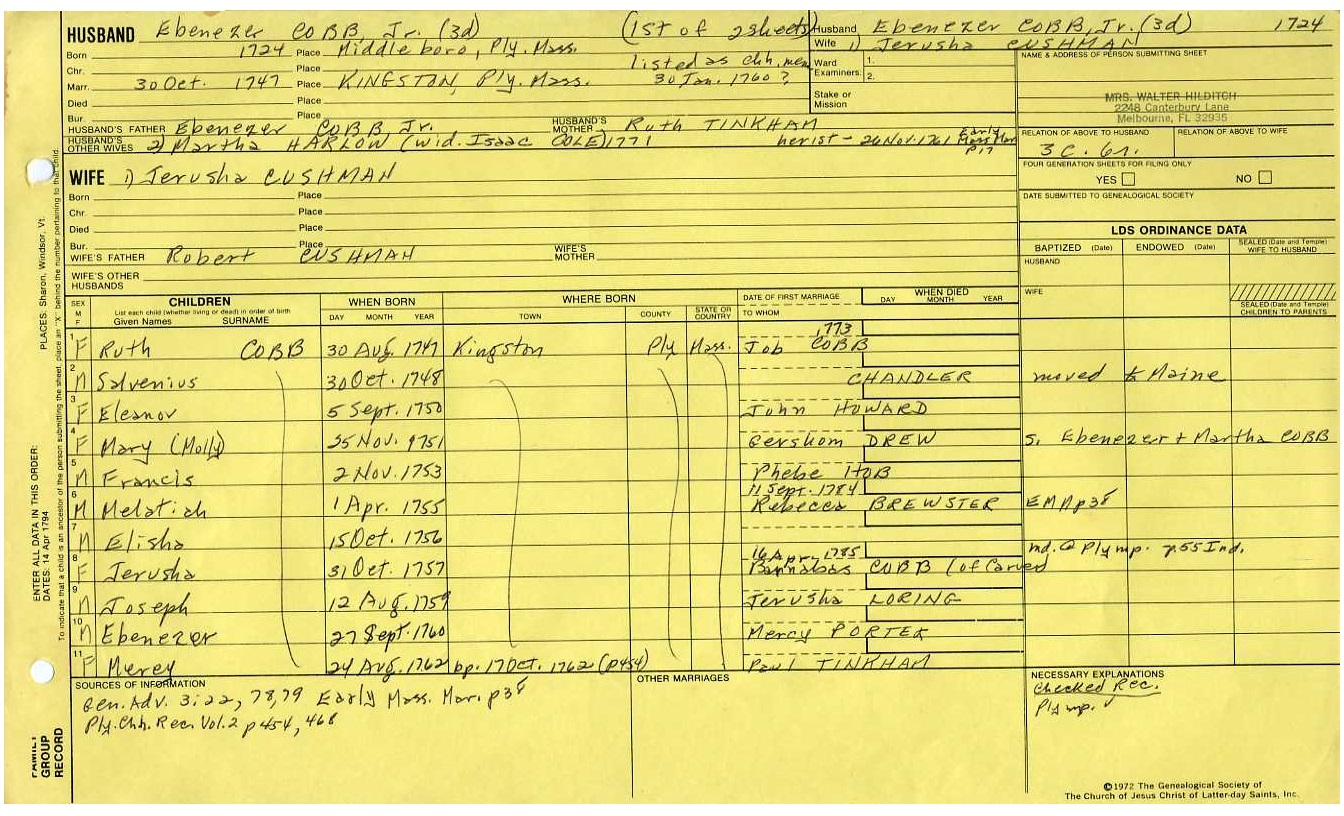 HUSBAND Ebenezer COBB, Jr. (3d) (1st of 2 sheets)
Born 1724 Place Middleboro, Ply. Mass.
Chr. Place listed as chh. mem
Marr. 30 Oct. 1747 Place KINGSTON, Ply. Mass. 30 Jan. 1760 ?
Died Place
Bur. Place
HUSBAND'S FATHER Ebenezer COBB, Jr. HUSBAND'S MOTHER Ruth TINKHAM
HUSBAND'S OTHER WIVES 2) Martha HARLOW (wid. Isaac COLE) 1771 her ist - 26 Nov. 1761 Early Mass Mar p17
Husband Ebenezer COBB, Jr. (3d) 1724
Wife 1) Jerusha CUSHMAN
Ward 1.
Examiners: 2.
Stake or
Mission
NAME & ADDRESS OF PERSON SUBMITTING SHEET
MRS. WALTER HILDITCH
2248 Canterbury Lane
Melbourne, FL 32935
RELATION OF ABOVE TO HUSBAND RELATION OF ABOVE TO WIFE
3 C. 6r.
FOUR GENERATION SHEETS FOR FILING ONLY
YES NO
DATE SUBMITTED TO GENEALOGICAL SOCIETY
WIFE 1) Jerusha CUSHMAN
Born Place
Chr. Place
Died Place
Bur. Place
WIFE'S FATHER Robert CUSHMAN WIFE'S MOTHER
WIFE'S OTHER HUSBANDS
LDS ORDINANCE DATA
BAPTIZED (Date) ENDOWED (Date) SEALED (Date and Temple) WIFE TO HUSBAND
HUSBAND
WIFE
SEALED (Date and Temple) CHILDREN TO PARENTS
SEX M F CHILDREN WHEN BORN WHERE BORN DATE OF FIRST MARRIAGE WHEN DIED
List each child (whether living or dead) in order of birth
Given Names SURNAME DAY MONTH YEAR TOWN COUNTY STATE OR COUNTRY TO WHOM DAY MONTH YEAR
1773
1 F Ruth COBB 30 Aug. 1747 Kingston Ply Mass. Job COBB
2 M Salvenius 30 Oct. 1748 CHANDLER moved to Maine
3 F Eleanor 5 Sept. 1750 John HOWARD
4 F Mary (Molly) 25 Nov. 1751 Gershom DREW s. Ebenezer + Martha COBB
5 M Francis 2 Nov. 1753 Phebe
11 Sept. 1784
6 M Melatiah 1 Apr. 1755 Rebecca BREWSTER EMM p38
7 M Elisha 15 Oct. 1756
16 Apr. 1785 md. @ Plymp. p.55 Ind.
8 F Jerusha 31 Oct. 1757 Barnabas COBB (of Carver
9 M Joseph 12 Aug. 1759 Jerusha LORING
10 M Ebenezer 27 Sept. 1760 Mercy PORTER
11 F Mercy 24 Aug. 1762 bp. 17 Oct. 1762 (p454) Paul TINKHAM
SOURCES OF INFORMATION
Gen. Adv. 3:22, 78,79 Early Mass. Mar. p38
Ply. Chh. Rec. Vol. 2 p454, 468
OTHER MARRIAGES
NECESSARY EXPLANATIONS
Checked Rec.
Plymp.
©1972 The Genealogical Society of
The Church of Jesus Christ of Latter-day Saints, Inc.
ENTER ALL DATA IN THIS ORDER:
DATES: 14 Apr 1794
PLACES: Sharon, Windsor, Vt.
To indicate that a child is an ancestor of the person submitting the sheet, place an "X" behind the number pertaining to that child.
FAMILY
GROUP
RECORD